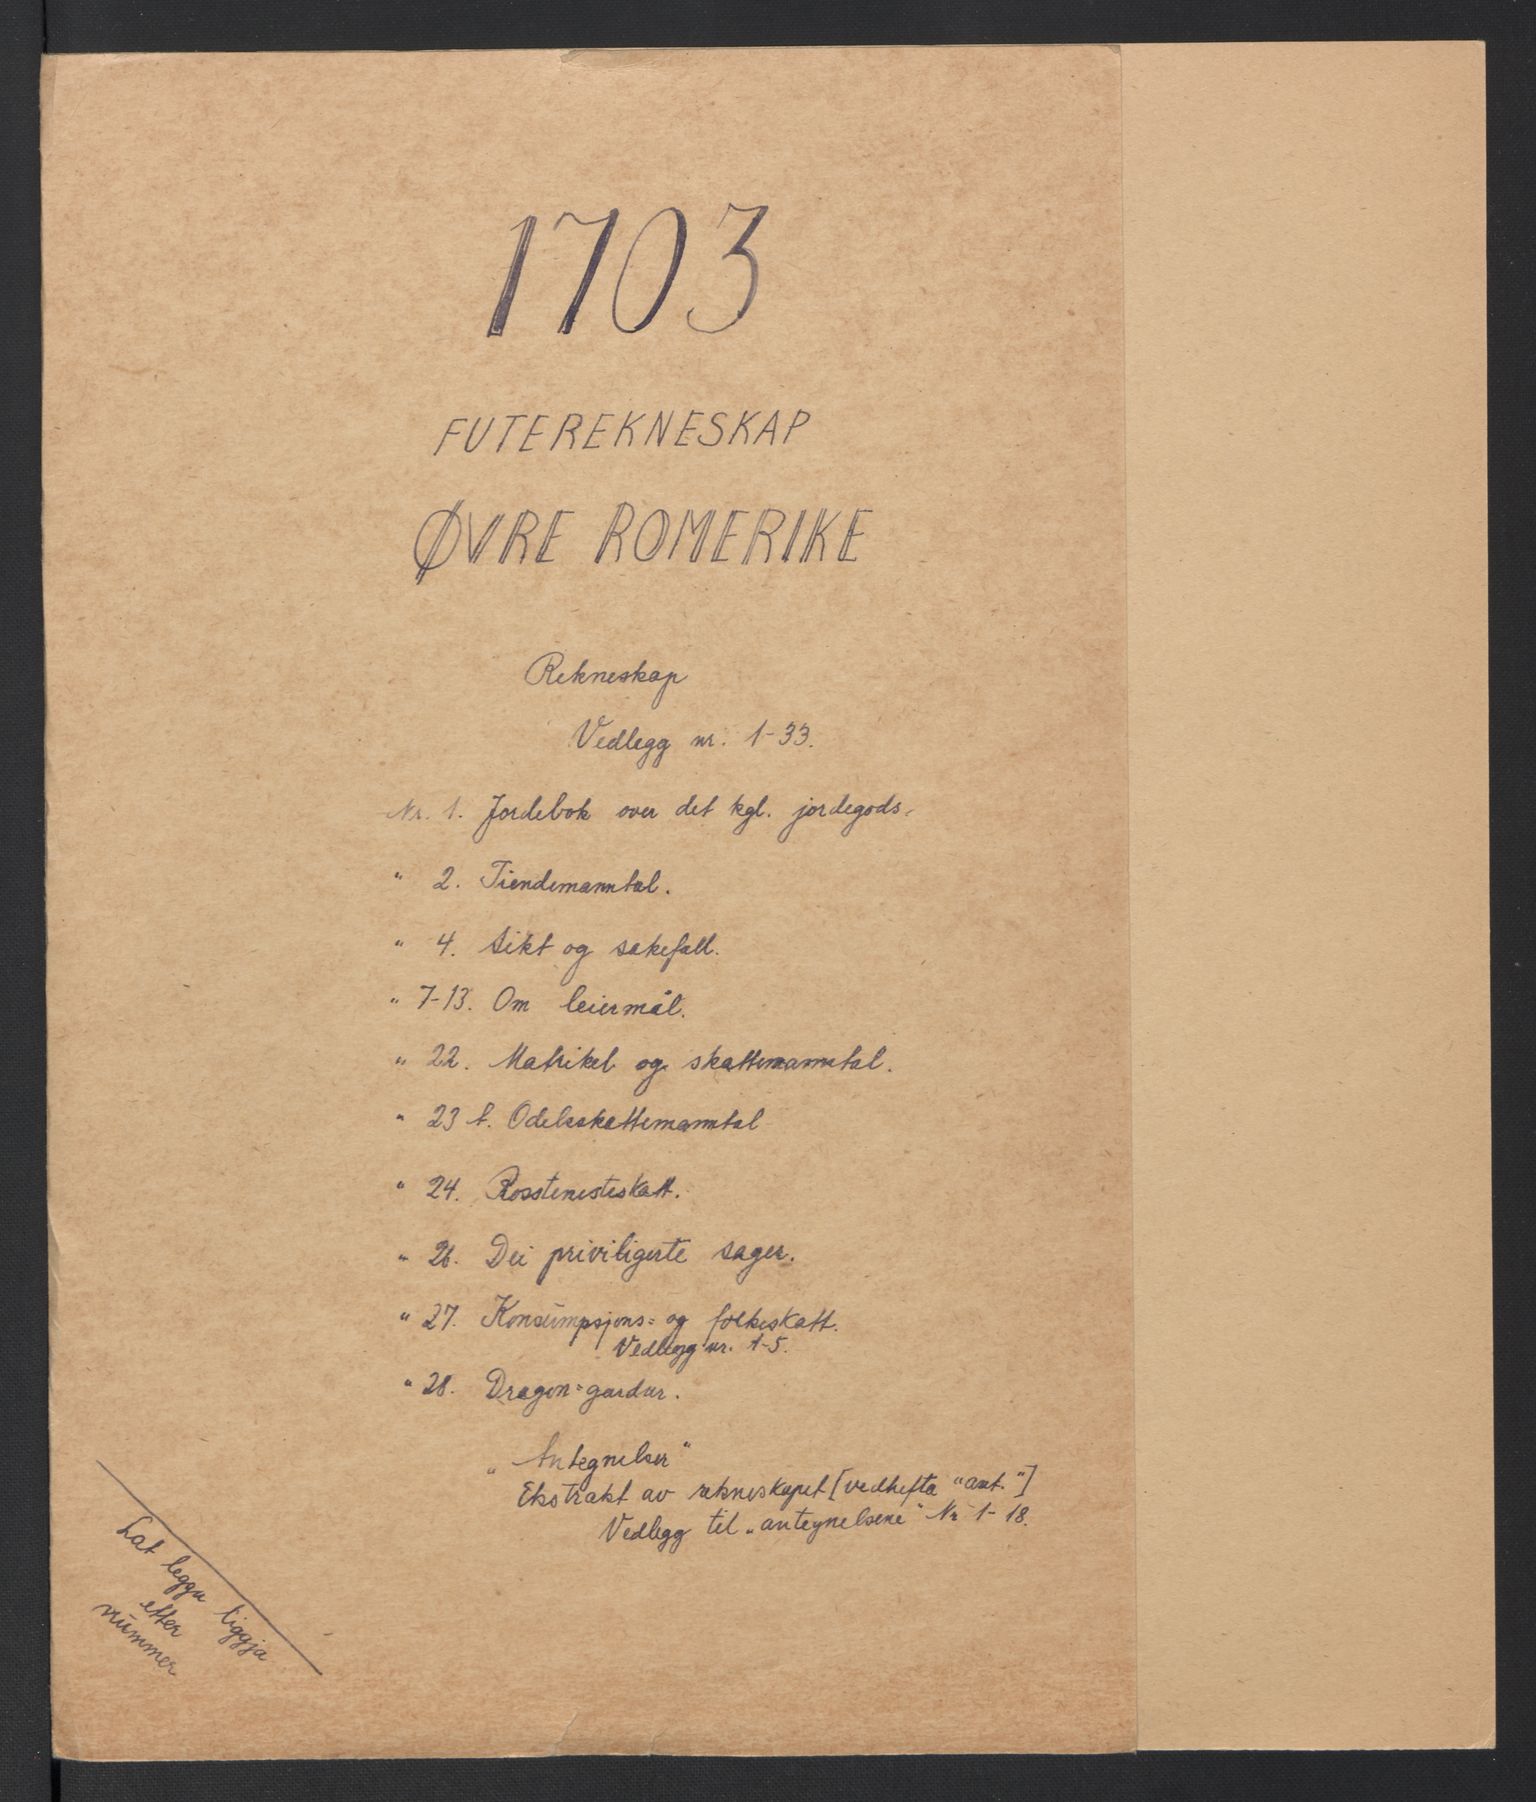 1703
FUTEREKNESKAP
ØVRE ROMERIKE
Rekneskap
Vedlegg nr. 1-33.
Nr. 1. Jordebok over det kgl. jordegods.
" 2. Tiendemanntal.
" 4. Sikt og sakefall.
" 7-13. Om leiermål.
" 22. Matrikel og skattemanntal.
" 23 f. Odelsskattemanntal
" 24. Rosstenesteskatt.
" 26. Dei priviligerte sager.
" 27. Konsumpsjons= og folkeskatt.
Vedlegg nr. 1-5.
" 28. Dragon=gardar.
„Antegnelser"
Ekstrakt av rekneskapet [vedhefta "ant."]
Vedlegg til „antegnelsene" Nr 1-18.
Lat legga liggja
etter
nummer